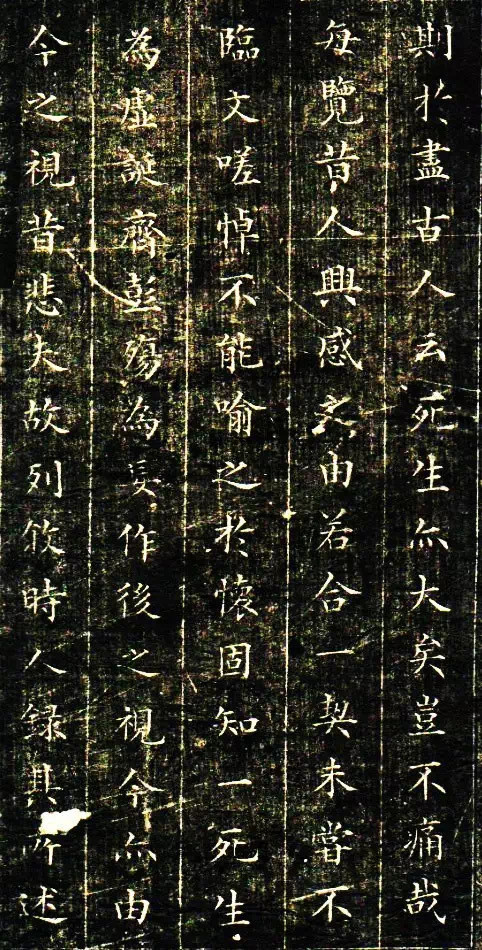 則於盡古人云死生亦大矣豈不痛哉
每覽昔人興感之由若合一契未嘗不
臨文嗟悼不能喻之於懷固知一死生
為虛誕齊彭殤為妄作後之視今亦由
今之視昔悲夫故列敘時人錄其所述